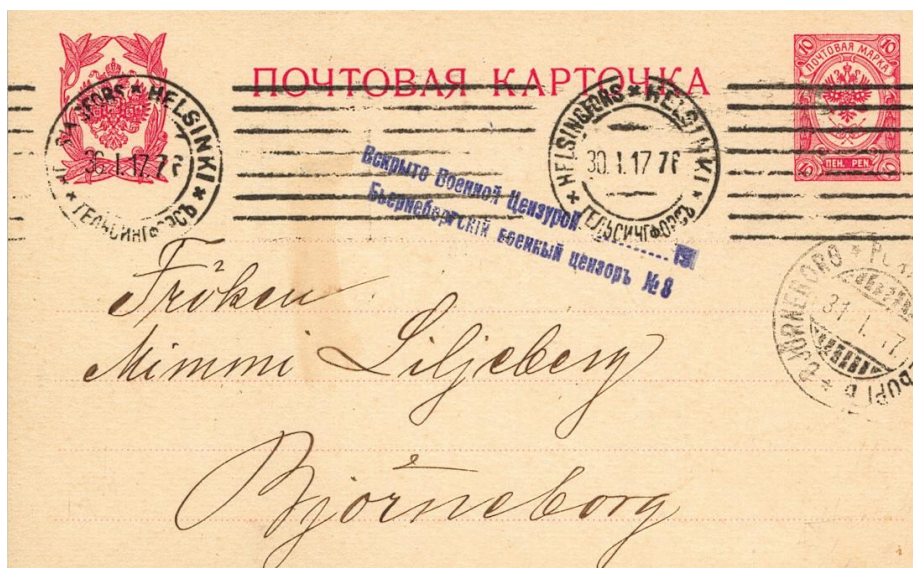 ПОЧТОВАЯ КАРТОЧКА
10 ПОЧТОВАЯ МАРКА 10
ПЕН. PEN.
HELSINKI * ГЕЛЬСИНГФОРСЪ
30.I.17. 7
HELSINGFORS * HELSINKI * ГЕЛЬСИНГФОРСЪ
30.I.17 7
Вскрыто Военной Цензурой .......... 191
Бьернеборгскій военный цензоръ № 8
BJÖRNEBORG
31.I.17
Fröken
Mimmi Liljeberg
Björneborg